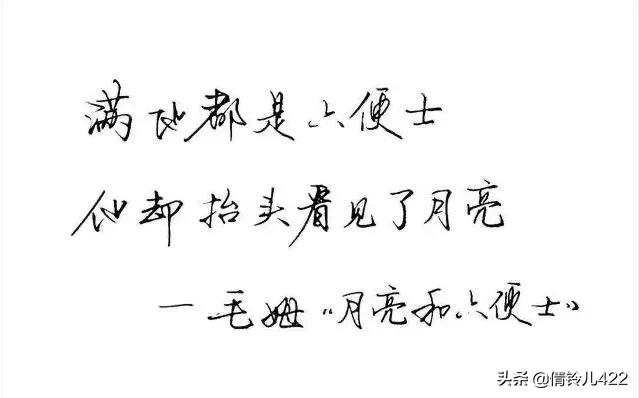 满地都是六便士
他却抬头看见了月亮
—毛姆“月亮和六便士”
头条 @倩铃儿422